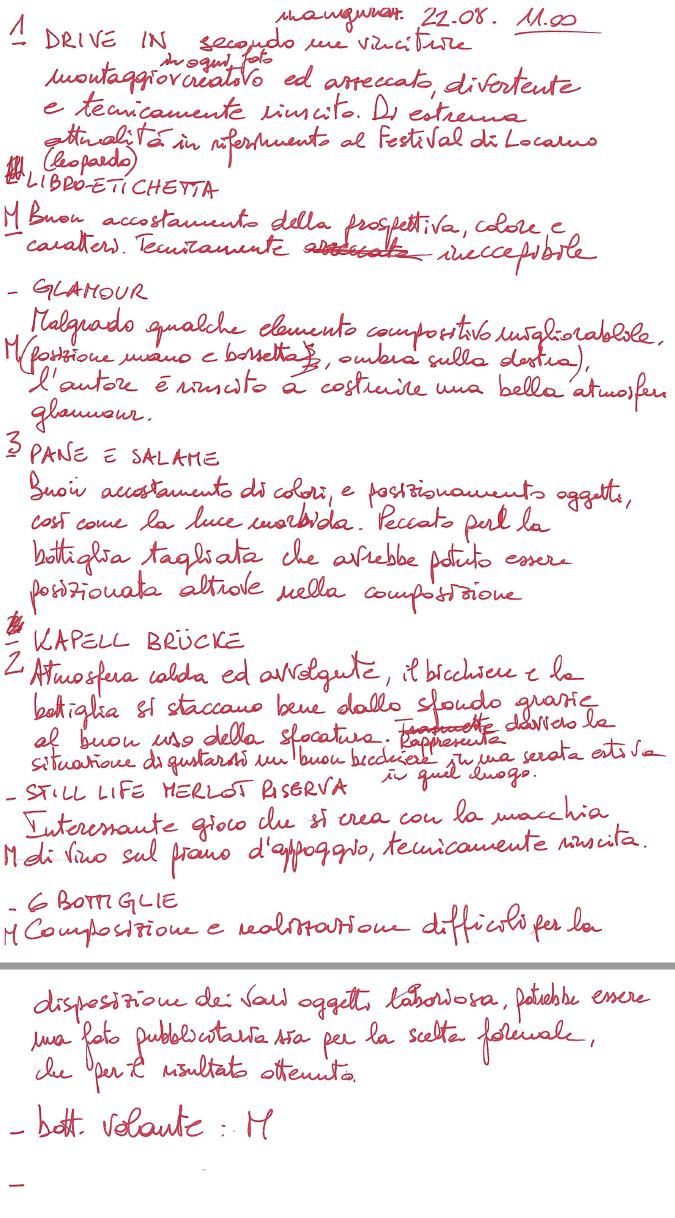 inauguraz. 22.08. 11.00
1 DRIVE IN secondo me vincitrice
in ogni foto
montaggio creativo ed azzeccato, divertente
e tecnicamente riuscito. Di estrema
attualità in riferimento al Festival di Locarno
(leopardo)
LIBRO-ETICHETTA
M Buon accostamento della prospettiva, colore e
caratteri. Tecnicamente azzeccata ineccepibile
- GLAMOUR
Malgrado qualche elemento compositivo migliorabile.
M (posizione mano e borsetta, ombra sulla destra),
l'autore è riuscito a costruire una bella atmosfera
glamour.
3 PANE E SALAME
Buon accostamento di colori, e posizionamento oggetti,
così come la luce morbida. Peccato per la
bottiglia tagliata che avrebbe potuto essere
posizionata altrove nella composizione
- KAPELL BRÜCKE
2 Atmosfera calda ed avvolgente, il bicchiere e la
bottiglia si staccano bene dallo sfondo grazie
al buon uso della sfocatura. Trasmette davvero la
Rappresenta
situazione di gustarsi un buon bicchiere in una serata estiva
in quel luogo.
- STILL LIFE MERLOT RISERVA
Interessante gioco che si crea con la macchia
M di vino sul piano d'appoggio, tecnicamente riuscita.
- 6 BOTTIGLIE
M Composizione e realizzazione difficili per la
disposizione dei vari oggetti laboriosa, potrebbe essere
una foto pubblicitaria sia per la scelta formale,
che per il risultato ottenuto.
- bott. volante : M
-